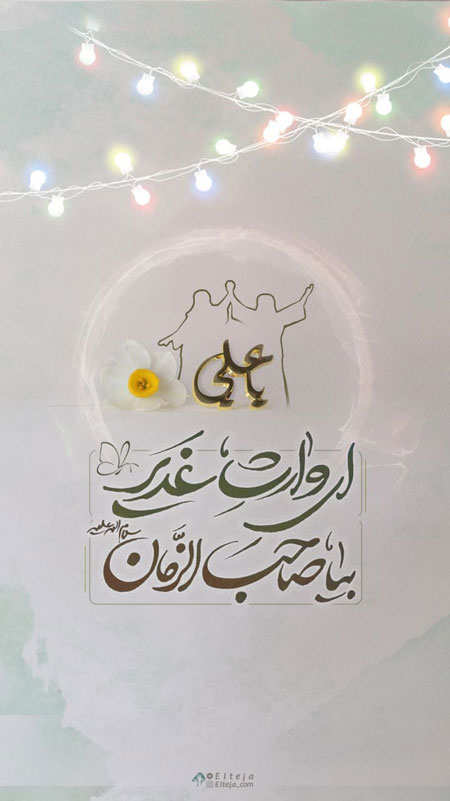 یا علي
ای وارث غدیر
بیا صاحب الزَّمان
سلام الله علیه
Elteja
Elteja_com